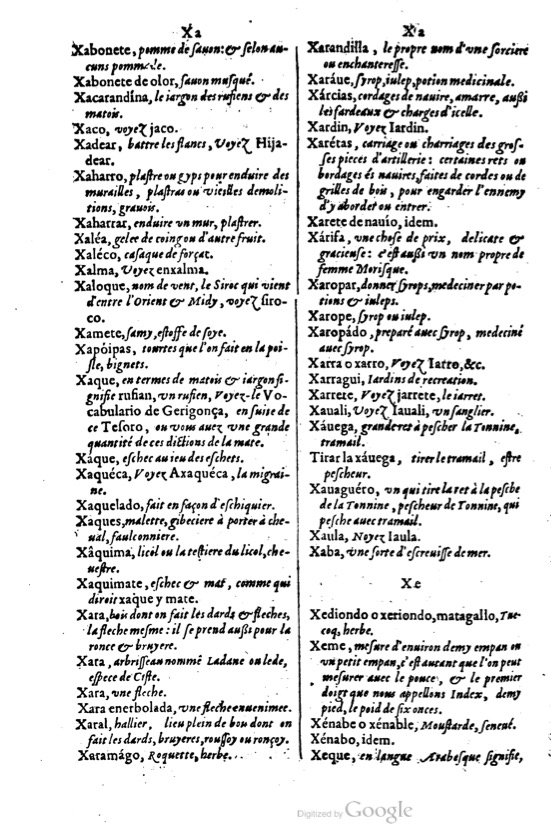 Xa
Xabonete, pomme de sauon: & selon au-
cuns pommade.
Xabonete de olor, sauon musqué.
Xacarandína, le iargon des rufiens & des
matois.
Xaco, voyez jaco.
Xadear, battre les flancs, Voyez Hija-
dear.
Xaharro, plastre ou gyps pour enduire des
murailles, plastras ou vieilles demoli-
tions, grauois.
Xaharrar, enduire vn mur, plastrer.
Xaléa, gelee de coing ou d'autre fruit.
Xaléco, casaque de forçat.
Xalma, Voyez enxalma.
Xaloque, nom de vent, le Siroc qui vient
d'entre l'Orient & Midy, voyez siro-
co.
Xamete, samy, estoffe de soye.
Xapóipas, tourtes que l'on fait en la poi-
sle, bignets.
Xaque, en termes de matois & iargon si-
gnifie rufian, vn rufien, Voyez-le Vo-
cabulario de Gerigonça, en suise de
ce Tesoro, ou vous auez vne grande
quantité de ces dictions de la mate.
Xaque, eschec au ieu des eschets.
Xaquéca, Voyez Axaquéca, la migrai-
ne.
Xaquelado, fait en façon d'eschiquier.
Xaques, malette, gibeciere à porter à che-
ual, faulconniere.
Xâquima, licol ou la testiere du licol, che-
uestre.
Xaquimate, eschec & mat, comme qui
diroit xaque y mate.
Xara, bois dont on fait les dards & fleches,
la fleche mesme: il se prend aussi pour la
ronce & bruyere.
Xara, arbrisseau nommé Ladane ou lede,
espece de Ciste.
Xara, vne fleche.
Xara enerbolada, vne fleche enuenimee.
Xaral, hallier, lieu plein de bou dont on
fait les dards, bruyeres, roussoy ou ronçoy.
Xaramágo, Roquette, herbe.
Xa
Xarandilla, le propre nom d'vne sorciere
ou enchanteresse.
Xaráue, syrop, iulep, potion medicinale.
Xárcias, cordages de nauire, amarre, aussi
les fardeaux & charges d'icelle.
Xardin, Voyez Iardin.
Xarétas, carriage ou charriages des gros-
ses pieces d'artillerie: certaines rets ou
bordages és nauires, faites de cordes ou de
grilles de bois, pour engarder l'ennemy
d'y abordet ou entrer.
Xarete de nauío, idem.
Xárifa, vne chose de prix, delicate &
gracieuse: c'est aussi vn nom propre de
femme Morisque.
Xaropar, donner syrops, medeciner par po-
tions & iuleps.
Xarope, syrop ou iulep.
Xaropádo, preparé auec syrop, medeciné
auec syrop.
Xarra o xarro, Voyez Iarro, &c.
Xarragui, Iardins de recreation.
Xarrete, Voyez jarrete, le iarret.
Xauali, Voyez Iauali, vn sanglier.
Xáuega, grande rets à pescher la Tonnine,
tramail.
Tirar la xáuega, tirer le tramail, estre
pescheur.
Xauaguéro, vn qui tire la ret à la pesche
de la Tonnine, pescheur de Tonnine, qui
pesche auec tramail.
Xaula, Noyez Iaula.
Xaba, vne sorte d'escreuisse de mer.
Xe
Xediondo o xeriondo, matagallo, Tue-
coq, herbe.
Xeme, mesure d'enuiron demy empan ou
vn petit empan, c'est autant que l'on peut
mesurer auec le pouce, & le premier
doigt que nous appellons Index, demy
pied, le poid de six onces.
Xénabe o xénable, Moustarde, seneué.
Xénabo, idem.
Xeque, en langue Arabesque signifie,
Digitized by Google